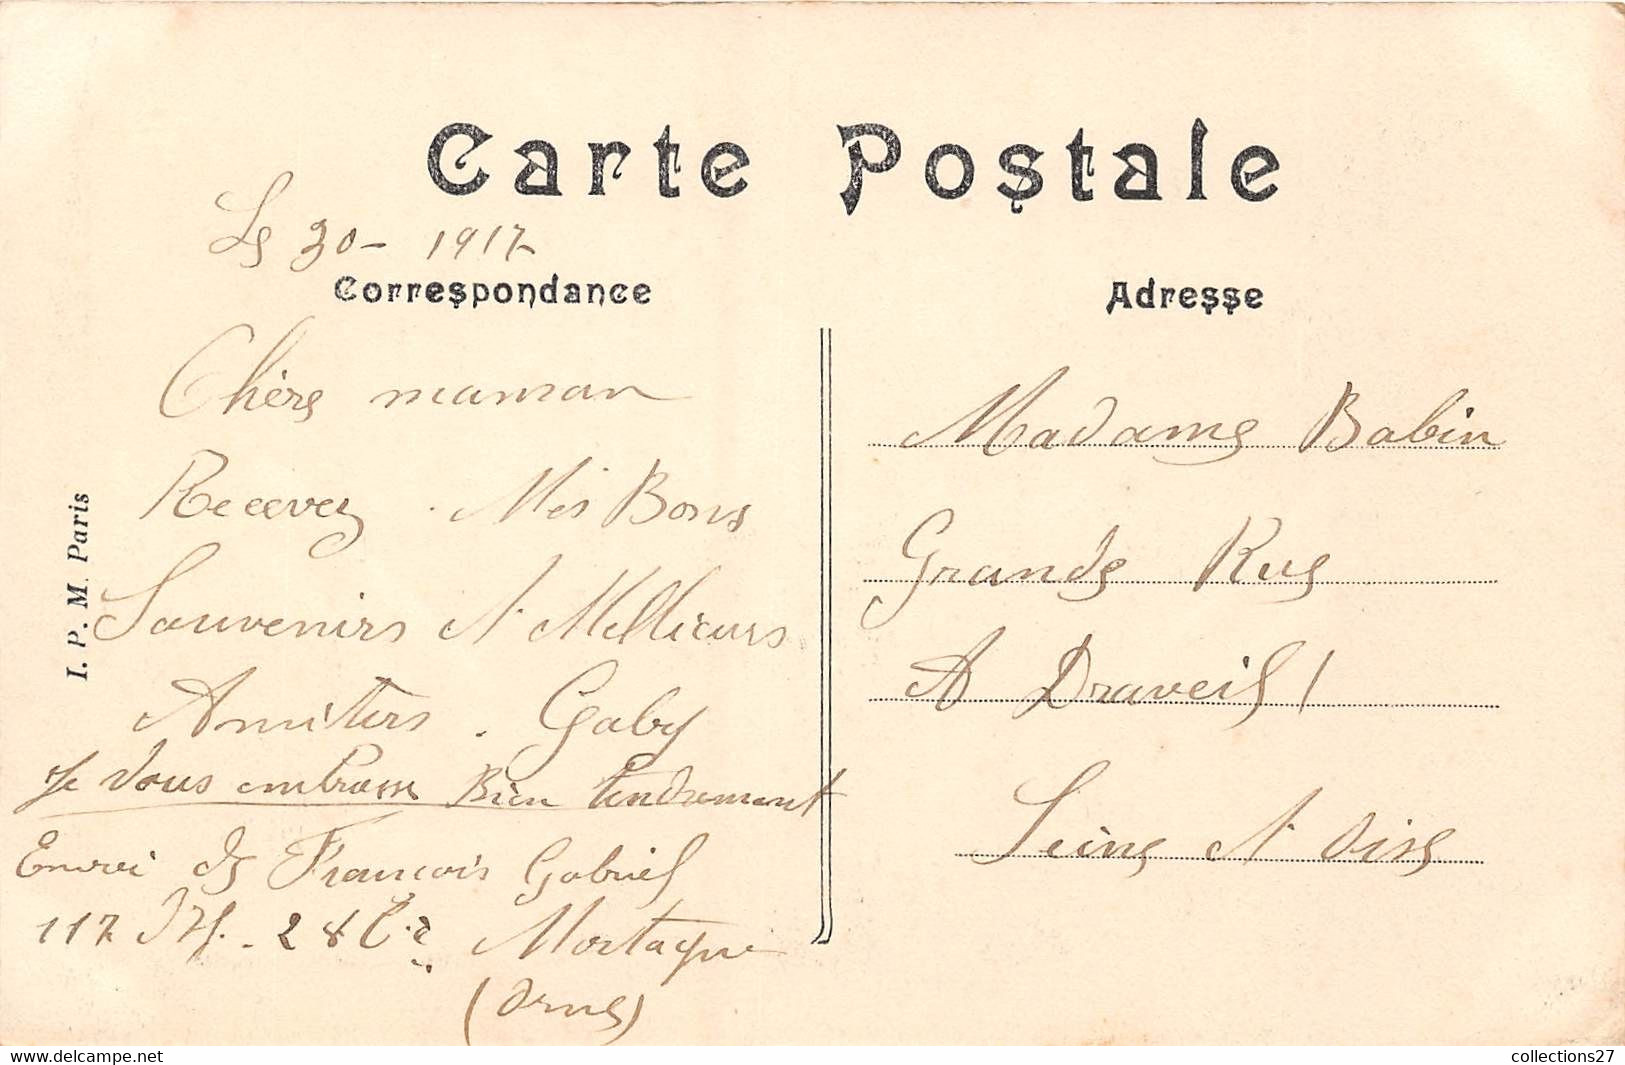 Carte Postale
Le 30 - 1917
Correspondance
Chère maman
Recevez Mes Bons
Souvenirs et Mellieurs
Amitiers. Gaby
Je Vous embrasse Bien tendrement
Envoi de Francois Gabriel
117 Inf. - 28 Cie Mortagne
(Orne)
I. P. M. Paris
Adresse
Madame Babin
Grande Rue
A Draveil
Seine et Oise
collections27